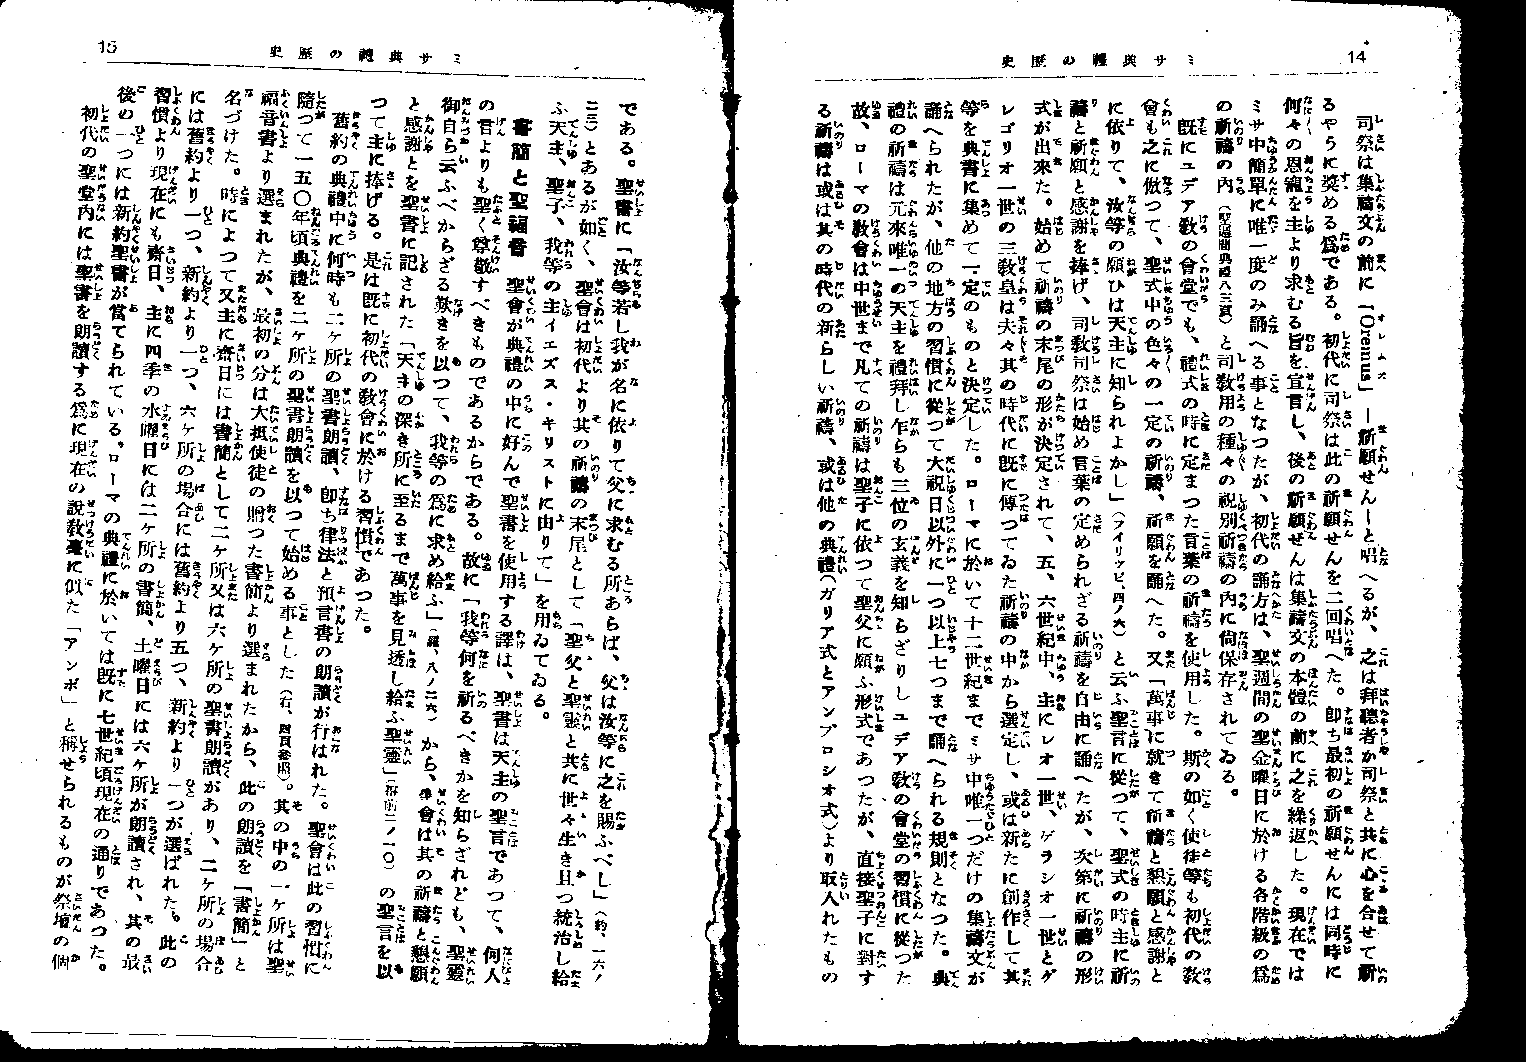 14
ミサ典禮の歴史
司祭は集禱文の前に「Oremus」―祈願せん―と唱へるが、之は拜聽者が司祭と共に心を合せて祈
るやうに奬める爲である。初代に司祭は此の祈願せんを二回唱へた。卽ち最初の祈願せんには同時に
何々の恩寵を主より求むる旨を宣言し、後の祈願せんは集禱文の本體の前に之を繰返した。現在では
ミサ中簡單に唯一度のみ誦へる事となつたが、初代の誦方は、聖週間の聖金曜日に於ける各階級の爲
の祈禱の内(聖週間典禮八三頁)と司敎用の種々の祝別祈禱の内に尙保存されてゐる。
既にユデア敎の會堂でも、禮式の時に定まつた言葉の祈禱を使用した。斯の如く使徒等も初代の敎
會も之に倣つて、聖式中の色々の一定の祈禱、祈願を誦へた。又「萬事に就きて祈禱と懇願と感謝と
に依りて、汝等の願ひは天主に知られよかし」(フイリツピ、四ノ六)と云ふ聖言に從つて、聖式の時主に祈
禱と祈願と感謝を捧げ、司敎司祭は始め言葉の定められざる祈禱を自由に誦へたが、次第に祈禱の形
式が出來た。始めて祈禱の末尾の形が決定されて、五、六世紀中、主にレオ一世、ゲラシオ一世とグ
レゴリオ一世の三敎皇は夫々其の時代に既に傳つてゐた祈禱の中から選定し、或は新たに創作して其
等を典書に集めて一定のものと決定した。ローマに於いて十二世紀までミサ中唯一つだけの集禱文が
誦へられたが、他の地方の習慣に從つて大祝日以外に一つ以上七つまで誦へられる規則となつた。典
禮の祈禱は元來唯一の天主を禮拜し乍らも三位の玄義を知らざりしユデア敎の會堂の習慣に從つた
故、ローマの敎會は中世まで凡ての祈禱は聖子に依つて聖父に願ふ形式であつたが、直接聖子に對す
る祈禱は或は其の時代の新らしい祈禱、或は他の典禮(ガリア式とアンブロシオ式)より取入れたもの
15
ミサ典禮の歴史
である。聖書に「汝等若し我が名に依りて父に求むる所あらば、父は汝等に之を賜ふべし」(約、一六ノ
二三)とあるが如く、聖會は初代より其の祈禱の末尾として「聖父と聖靈と共に世々生き且つ統治し給
ふ天主、聖子、我等の主イエズス・キリストに由りて」を用ゐてゐる。
書簡と聖福音 聖會が典禮の中に好んで聖書を使用する譯は、聖書は天主の聖言であつて、何人
の言よりも聖く尊敬すべきものであるからである。故に「我等何を祈るべきかを知らざれども、聖靈
御自ら云ふべからざる歎きを以つて、我等の爲に求め給ふ」(羅、八ノ二六)から、聖會は其の祈禱と懇願
と感謝とを聖書に記された「天主の深き所に至るまで萬事を見透し給ふ聖靈」(哥前二ノ一〇)の聖言を以
つて主に捧げる。是は既に初代の敎會に於ける習慣であつた。
舊約の典禮中に何時も二ケ所の聖書朗讀、卽ち律法と預言書の朗讀が行はれた。聖會は此の習慣に
隨つて一五〇年頃典禮を二ケ所の聖書朗讀を以つて始める事とした(右、四頁參照)。其の中の一ケ所は聖
福音書より選まれたが、最初の分は大抵使徒の贈つた書簡より選まれたから、此の朗讀を「書簡」と
名づけた。時によつて又主に齋日には書簡として二ケ所又は六ケ所の聖書朗讀があり、二ケ所の場合
には舊約より一つ、新約より一つ、六ケ所の場合には舊約より五つ、新約より一つが選ばれた。此の
習慣より現在にも齋日、主に四季の水曜日には二ケ所の書簡、土曜日には六ケ所が朗讀され、其の最
後の一つには新約聖書が當てられている。ローマの典禮に於いては既に七世紀頃現在の通りであつた。
初代の聖堂内には聖書を朗讀する爲に現在の說敎臺に似た「アンボ」と稱せられるものが祭壇の個